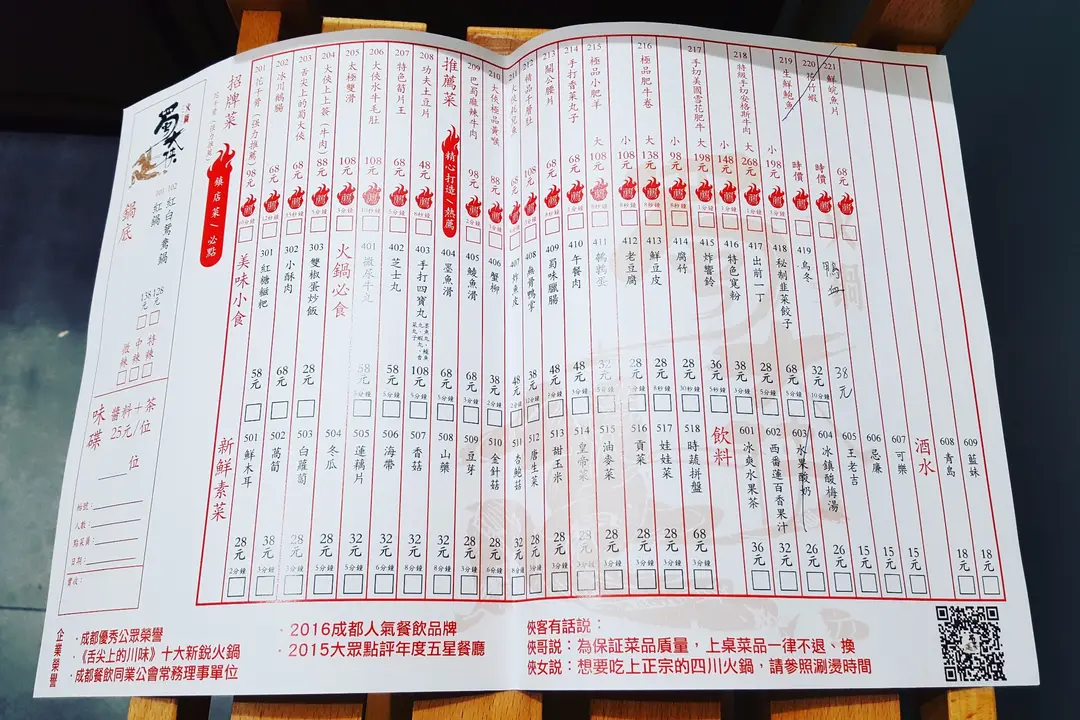 火鍋
蜀大俠
鍋底
101 紅鍋 138元
102 紅白鴛鴦鍋 128元
微辣
中辣
特辣
味碟
醬料+茶
25元/位
位
帖號：
人數：
點菜員：
日期：
實收：
招牌菜
花千骨（張力推薦）
鎮店菜/必點
201 花千骨（張力推薦） 98元
202 冰川鵝腸 68元
203 舌尖上的蜀大俠 68元
204 大俠上上簽（牛肉） 88元
205 太極雙滑 108元
206 大俠水牛毛肚 108元
207 特色筍片王 68元
208 功夫土豆片 48元
推薦菜
精心打造/熱薦
209 巴蜀麻辣牛肉 98元
210 大俠極品黃喉 88元
211 68元
212 精品千層肚 108元
213 關公腰片 68元
214 手打香菜丸子 68元
215 極品小肥羊 大 108元 小
216 極品肥牛卷 大 138元 小 98元
217 手切美國雪花肥牛 大 198元 小 148元
218 特級手切安格斯牛肉 大 268元 小 198元
219 生鮮鮑魚 時價
220 花竹蝦 時價
221 鮮魷魚片 68元
美味小食
301 紅糖糍粑 58元
302 小酥肉 68元
303 雙椒蛋炒飯 28元
火鍋必食
401 撒尿牛丸 58元
402 芝士丸 58元
403 手打四寶丸 108元
404 墨魚滑 68元
405 鯪魚滑 68元
406 蟹柳 38元
407 炸魚皮 48元
408 無骨鴨掌 38元
409 蜀味臘腸 48元
410 午餐肉 48元
411 鵪鶉蛋 32元
412 老豆腐 28元
413 鮮豆皮 28元
414 腐竹 28元
415 炸響鈴 36元
416 特色寬粉 38元
417 出前一丁 28元
418 秘制韭菜餃子 68元
419 烏冬 32元
鴨血 38元
新鮮素菜
501 鮮木耳 28元 2分鐘
502 萵筍 38元
503 白蘿蔔 28元
504 冬瓜 28元 5分鐘
505 蓮藕片 32元 5分鐘
506 海帶 32元
507 香菇 32元
508 山藥 32元
509 豆芽 28元
510 金針菇 28元
511 杏鮑菇 32元
512 唐生菜 28元
513 甜玉米 28元
514 皇帝菜 28元
515 油麥菜 28元
516 貢菜 28元
517 娃娃菜 28元
518 時蔬拼盤 68元
飲料
601 冰爽水果茶 36元
602 西番蓮百香果汁 32元
603 水果酸奶 26元
604 冰鎮酸梅湯 26元
605 王老吉 15元
606 忌廉 15元
607 可樂 15元
酒水
608 青島 18元
609 藍妹 18元
企業榮譽
·成都優秀公眾榮譽
·《舌尖上的川味》十大新銳火鍋
·成都餐飲同業公會常務理事單位
·2016成都人氣餐飲品牌
·2015大眾點評年度五星餐廳
俠客有話説：
俠哥説：為保証菜品質量，上桌菜品一律不退、換
俠女説：想要吃上正宗的四川火鍋，請參照涮燙時間